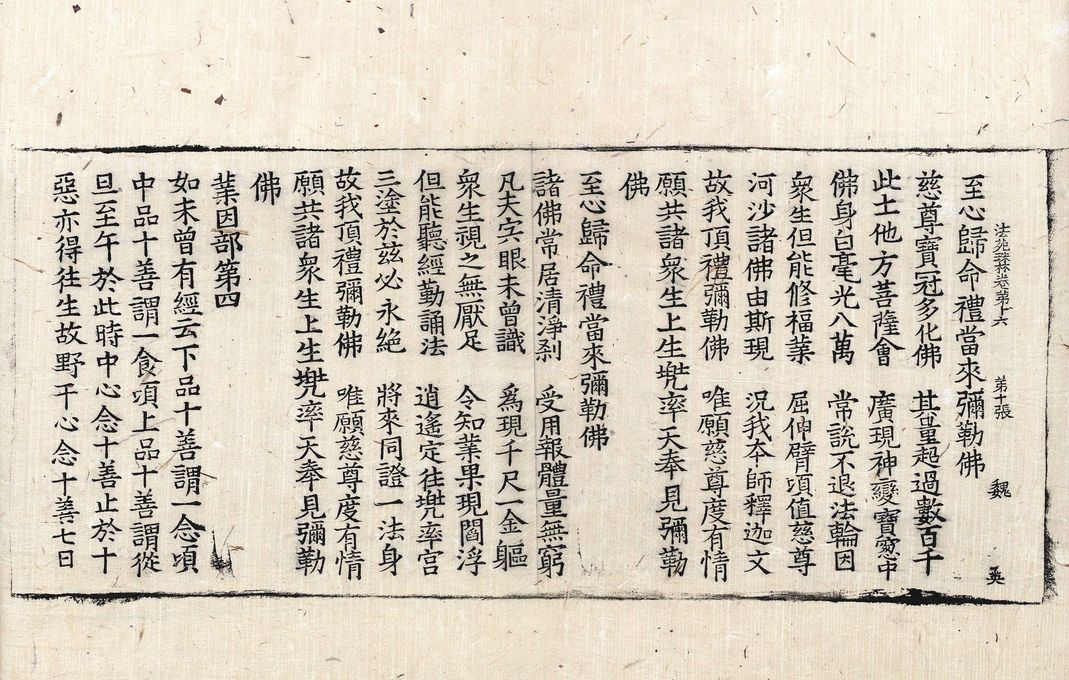 法苑珠林卷第十六　第十張　魏　英
至心歸命禮當來彌勒佛
慈尊寶冠多化佛　其量超過數百千
此土他方菩薩會　廣現神變寶窓中
佛身白毫光八萬　常說不退法輪因
衆生但能修福業　屈伸臂頃值慈尊
河沙諸佛由斯現　況我本師釋迦文
故我頂禮彌勒佛　唯願慈尊度有情
願共諸衆生上生兠率天奉見彌勒
佛
至心歸命禮當來彌勒佛
諸佛常居清淨刹　受用報體量無窮
凡夫宍眼未曾識　爲現千尺一金軀
衆生視之無厭足　令知業果現閻浮
但能聽經勤誦法　逍遙定往兠率宮
三塗於兹必永絕　將來同證一法身
故我頂禮彌勒佛　唯願慈尊度有情
願共諸衆生上生兠率天奉見彌勒
佛
業因部第四
如未曾有經云下品十善謂一念頃
中品十善謂一食頃上品十善謂從
旦至午於此時中心念十善止於十
惡亦得往生故野干心念十善七日